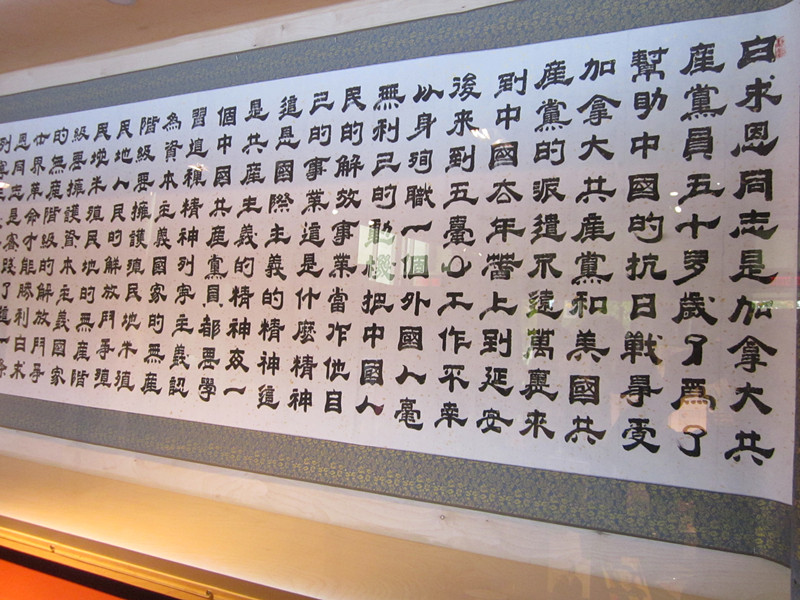 白求恩同志是加拿大共
產黨員五十多歲了為了
幫助中國的抗日戰爭受
加拿大共產黨和美國共
產黨的派遣不遠萬裏來
到中國去年帶上到延安
後來到五臺工作不幸
以身殉職一個外國人毫
無利己的動機把中國人
民的解放事業當作他自
己的事業這是什麼精神
這是國際主義的精神這
是共產主義的精神每一
個中國共產黨員都要學
習這種精神列寧主義認
為資本主義國家的無產
階級要擁護殖民地半殖
民地人民的解放鬥爭殖
民地半殖民地的無產階
級要擁護資本主義國家
的無產階級的解放鬥爭
世界革命才能勝利白求
恩同志是實踐了這一條
列寧